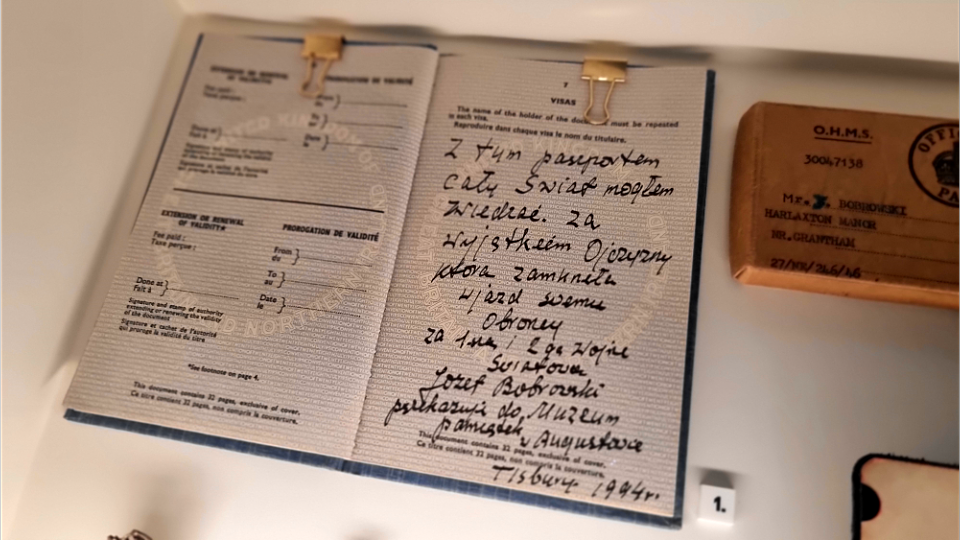 EXTENSION OR RENEWAL
OF VALIDITY*
PROROGATION DE VALIDITÉ
Fee paid :
Taxe perçue :
From
du
To
au
Done at
Fait à
Date
le
Signature and stamp of authority
extending or renewing the validity
of the document
Signature et cachet de l'autorité
qui proroge la validité du titre
EXTENSION OR RENEWAL
OF VALIDITY*
PROROGATION DE VALIDITÉ
Fee paid :
Taxe perçue :
From
du
To
au
Done at
Fait à
Date
le
Signature and stamp of authority
extending or renewing the validity
of the document
Signature et cachet de l'autorité
qui proroge la validité du titre
*See footnote on page 4.
This document contains 32 pages, exclusive of cover.
Ce titre contient 32 pages, non compris la couverture.
7
VISAS
The name of the holder of the document must be repeated
in each visa.
Reproduire dans chaque visa le nom du titulaire.
Z tym paszportem
cały Świat mogłem
zwiedzać. za
wyjątkiem Ojczyzny
ktora zamknęła
wjazd swemu
Obroncy
za 1szą i 2gą Wojnę
Swiatową
Jozef Bobrowski
przekazuję do Muzeum
pamiątek w Augustowie
This document contains 32 pages, exclusive of cover.
Ce titre contient 32 pages, non compris la couverture.
Tisbury 1994r.
O.H.M.S.
30047138
Mr. J. BOBROWSKI
HARLAXTON MANOR
NR.GRANTHAM
1.